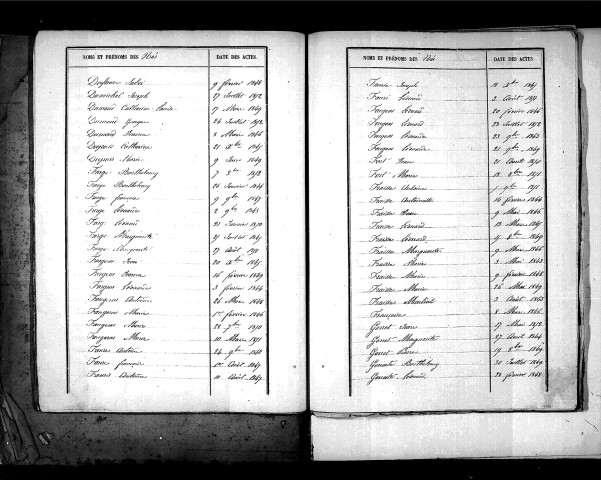 NOMS ET PRÉNOMS DES Nés DATE DES ACTES.
Dufaure Jules 9 février 1868
Dumichel Joseph 27 Juillet 1872
Dumond Catherine Louise 17 Mai 1869
Dumond 24 Juillet 1872
Dumond 8 Mars 1866
Dupuis Catherine 21 Xbre 1867
Dupuis Marie 9 Juin 1869
Farge Barthélemy 7 1872
Farge Barthélemy 26 Janvier 1864
Farge 9 9bre 1867
Farge Léonarde 2 9bre 1863
Farge Léonard 21 Janvier 1870
Farge Marguerite 27 Juillet 1867
Farge Marguerite 27 Août 1871
Fargeas Jean 20 Xbre 1867
Fargeas 16 février 1869
Fargeas Léonard 3 février 1864
Fargeas Antoine 26 Mai 1868
Fargeas Marie 1er février 1866
Fargeas Marie 28 7bre 1870
Fargeas Marie 10 Mars 1871
Faure Antoine 24 9bre 1870
Faure François 1er Août 1867
Faure Antoine 11 Août 1867
NOMS ET PRÉNOMS DES Nés DATE DES ACTES.
Faure Joseph 18 Xbre 1867
Faure Léonard 2 Août 1871
Fargeas Léonard 20 février 1866
Fargeas Léonard 23 Juillet 1872
Fargeas Léonarde 23 9bre 1863
Fargeas Léonarde 21 9bre 1869
Fort Jean 21 Août 1870
Fort Marie 18 8bre 1871
Fraisse Antoine 7 9bre 1871
Fraisse Antoinette 16 février 1864
Fraisse Jean 9 Mai 1866
Fraisse Léonard 13 Mars 1867
Fraisse Léonard 4 8bre 1869
Fraisse Marguerite 9 Mars 1866
Fraisse Marie 3 Mai 1863
Fraisse Marie 9 février 1868
Fraisse Marie 26 Mai 1869
Fraisse Martial 3 Août 1863
Françoise 8 Mars 1866
Genet Jean 17 Mai 1872
Genet Marguerite 27 Août 1864
Genet Pierre 19 8bre 1869
Geneste Barthélemy 20 Juillet 1869
Geneste Léonard 28 février 1868